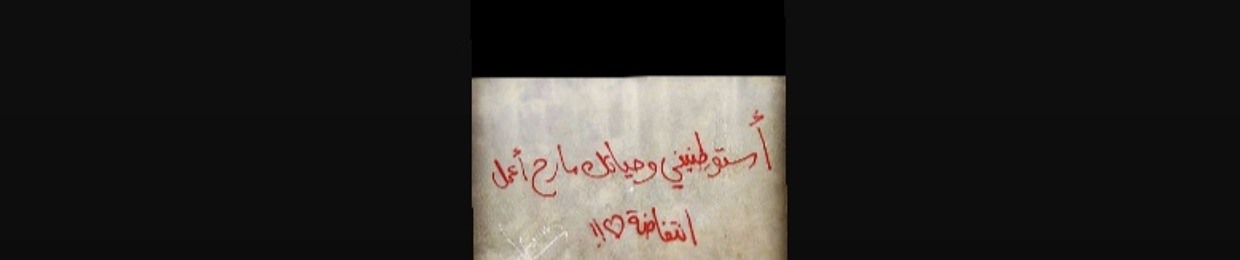 أُستوطنيني وحياتك مارح أعمل
انتفاضة ♡!!